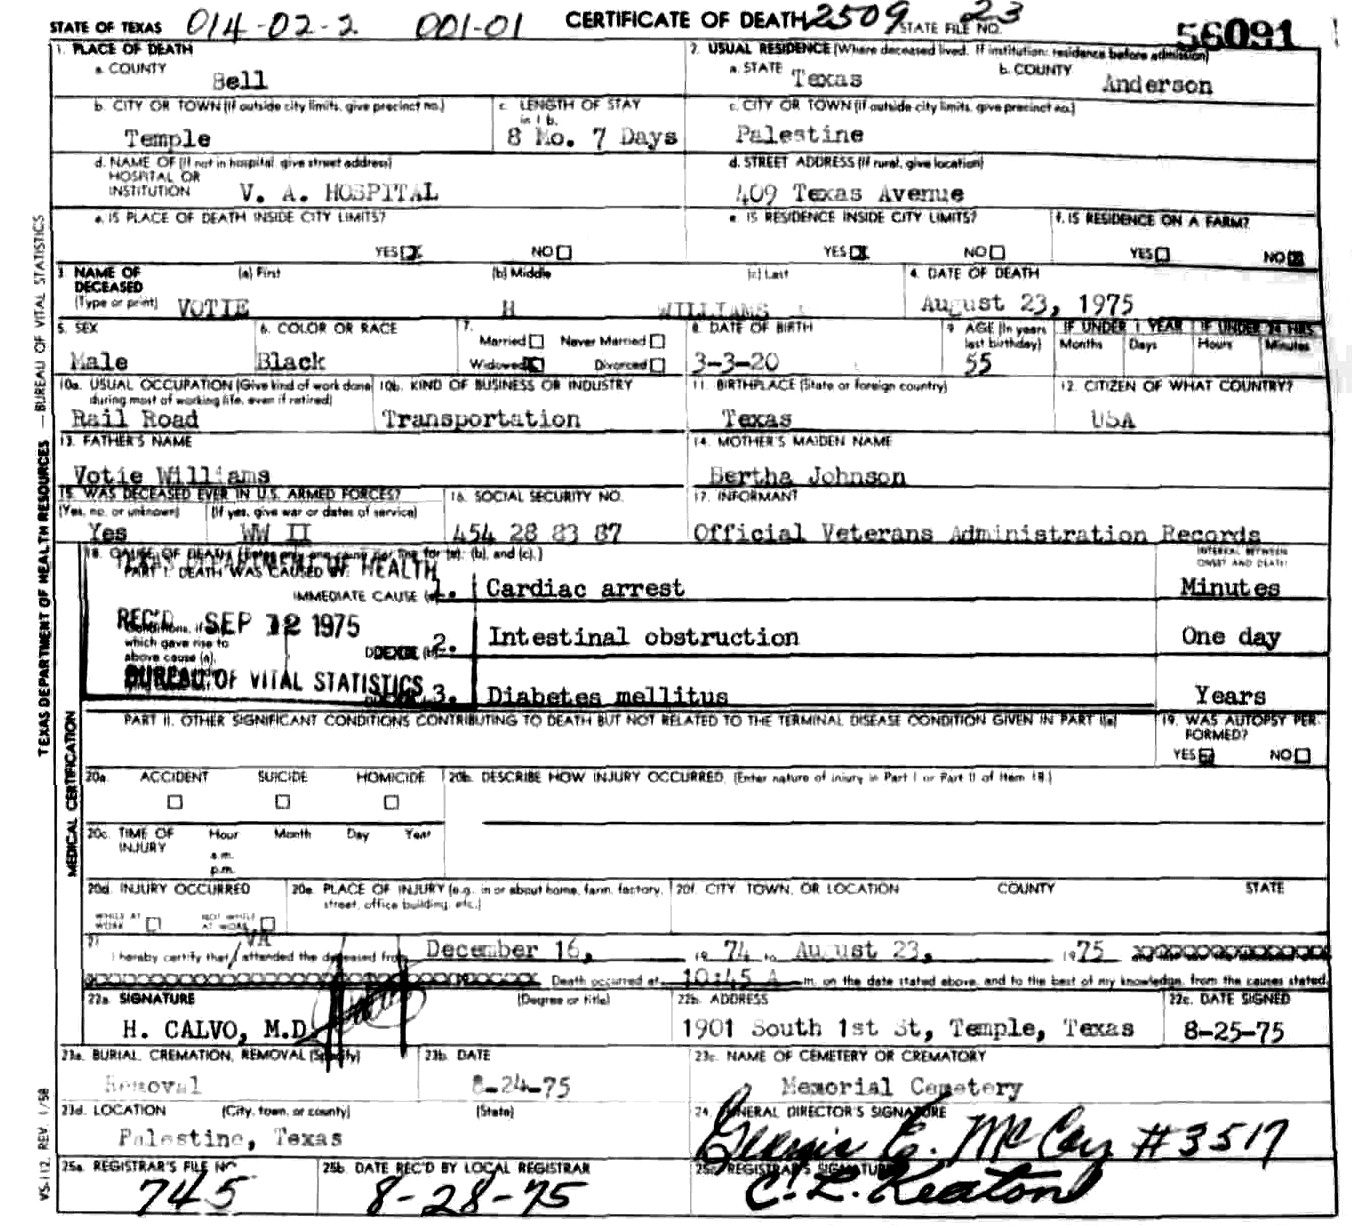 STATE OF TEXAS 014-02-2 001-01 CERTIFICATE OF DEATH 2509 STATE FILE NO. 23 56091
1. PLACE OF DEATH
a. COUNTY
Bell
2. USUAL RESIDENCE (Where deceased lived. If institution: residence before admission)
a. STATE Texas b. COUNTY Anderson
b. CITY OR TOWN (If outside city limits, give precinct no.)
Temple
c. LENGTH OF STAY
in 1 b.
8 Mo. 7 Days
c. CITY OR TOWN (If outside city limits, give precinct no.)
Palestine
d. NAME OF (If not in hospital, give street address)
HOSPITAL OR
INSTITUTION V. A. HOSPITAL
d. STREET ADDRESS (If rural, give location)
409 Texas Avenue
e. IS PLACE OF DEATH INSIDE CITY LIMITS?
YES NO
e. IS RESIDENCE INSIDE CITY LIMITS?
YES NO
f. IS RESIDENCE ON A FARM?
YES NO
3. NAME OF (a) First (b) Middle (c) Last
DECEASED
(Type or print) VOTIE H WILLIAMS
4. DATE OF DEATH
August 23, 1975
5. SEX
Male
6. COLOR OR RACE
Black
7.
Married Never Married
Widowed Divorced
8. DATE OF BIRTH
3-3-20
9. AGE (In years
last birthday)
55
IF UNDER 1 YEAR
Months Days
IF UNDER 24 HRS.
Hours Minutes
10a. USUAL OCCUPATION (Give kind of work done
during most of working life, even if retired)
Rail Road
10b. KIND OF BUSINESS OR INDUSTRY
Transportation
11. BIRTHPLACE (State or foreign country)
Texas
12. CITIZEN OF WHAT COUNTRY?
USA
13. FATHER'S NAME
Votie Williams
14. MOTHER'S MAIDEN NAME
Bertha Johnson
15. WAS DECEASED EVER IN U.S. ARMED FORCES?
(Yes, no, or unknown) (If yes, give war or dates of service)
Yes WW II
16. SOCIAL SECURITY NO.
454 28 83 87
17. INFORMANT
Official Veterans Administration Records
18. CAUSE OF DEATH (Enter only one cause per line for (a), (b), and (c).)
TEXAS DEPARTMENT OF HEALTH
PART I. DEATH WAS CAUSED BY:
INTERVAL BETWEEN
ONSET AND DEATH
IMMEDIATE CAUSE (a) 1. Cardiac arrest Minutes
REC'D SEP 12 1975
Conditions, if
which gave rise to
above cause (a),
2. Intestinal obstruction One day
BUREAU OF VITAL STATISTICS
3. Diabetes mellitus Years
PART II. OTHER SIGNIFICANT CONDITIONS CONTRIBUTING TO DEATH BUT NOT RELATED TO THE TERMINAL DISEASE CONDITION GIVEN IN PART I(a)
19. WAS AUTOPSY PER-
FORMED?
YES NO
20a. ACCIDENT SUICIDE HOMICIDE
20b. DESCRIBE HOW INJURY OCCURRED. (Enter nature of injury in Part I or Part II of Item 18.)
20c. TIME OF Hour Month Day Year
INJURY a.m.
p.m.
20d. INJURY OCCURRED
WHILE AT
WORK
NOT WHILE
AT WORK
20e. PLACE OF INJURY (e.g. in or about home, farm, factory,
street, office building, etc.)
20f. CITY, TOWN, OR LOCATION COUNTY STATE
21. VA
I hereby certify that / attended the deceased from December 16, 19 74 to August 23, 19 75
Death occurred at 10:45 A m. on the date stated above, and to the best of my knowledge, from the causes stated.
22a. SIGNATURE (Degree or title)
H. CALVO, M.D
22b. ADDRESS
1901 South 1st St, Temple, Texas
22c. DATE SIGNED
8-25-75
23a. BURIAL, CREMATION, REMOVAL (Specify)
Removal
23b. DATE
8-24-75
23c. NAME OF CEMETERY OR CREMATORY
Memorial Cemetery
23d. LOCATION (City, town, or county) (State)
Palestine, Texas
24. FUNERAL DIRECTOR'S SIGNATURE
E. McCoy #3517
25a. REGISTRAR'S FILE NO.
745
25b. DATE REC'D BY LOCAL REGISTRAR
8-28-75
25c. REGISTRAR'S SIGNATURE
C. L. Keaton
TEXAS DEPARTMENT OF HEALTH RESOURCES — BUREAU OF VITAL STATISTICS
MEDICAL CERTIFICATION
VS-112, REV. 1/58